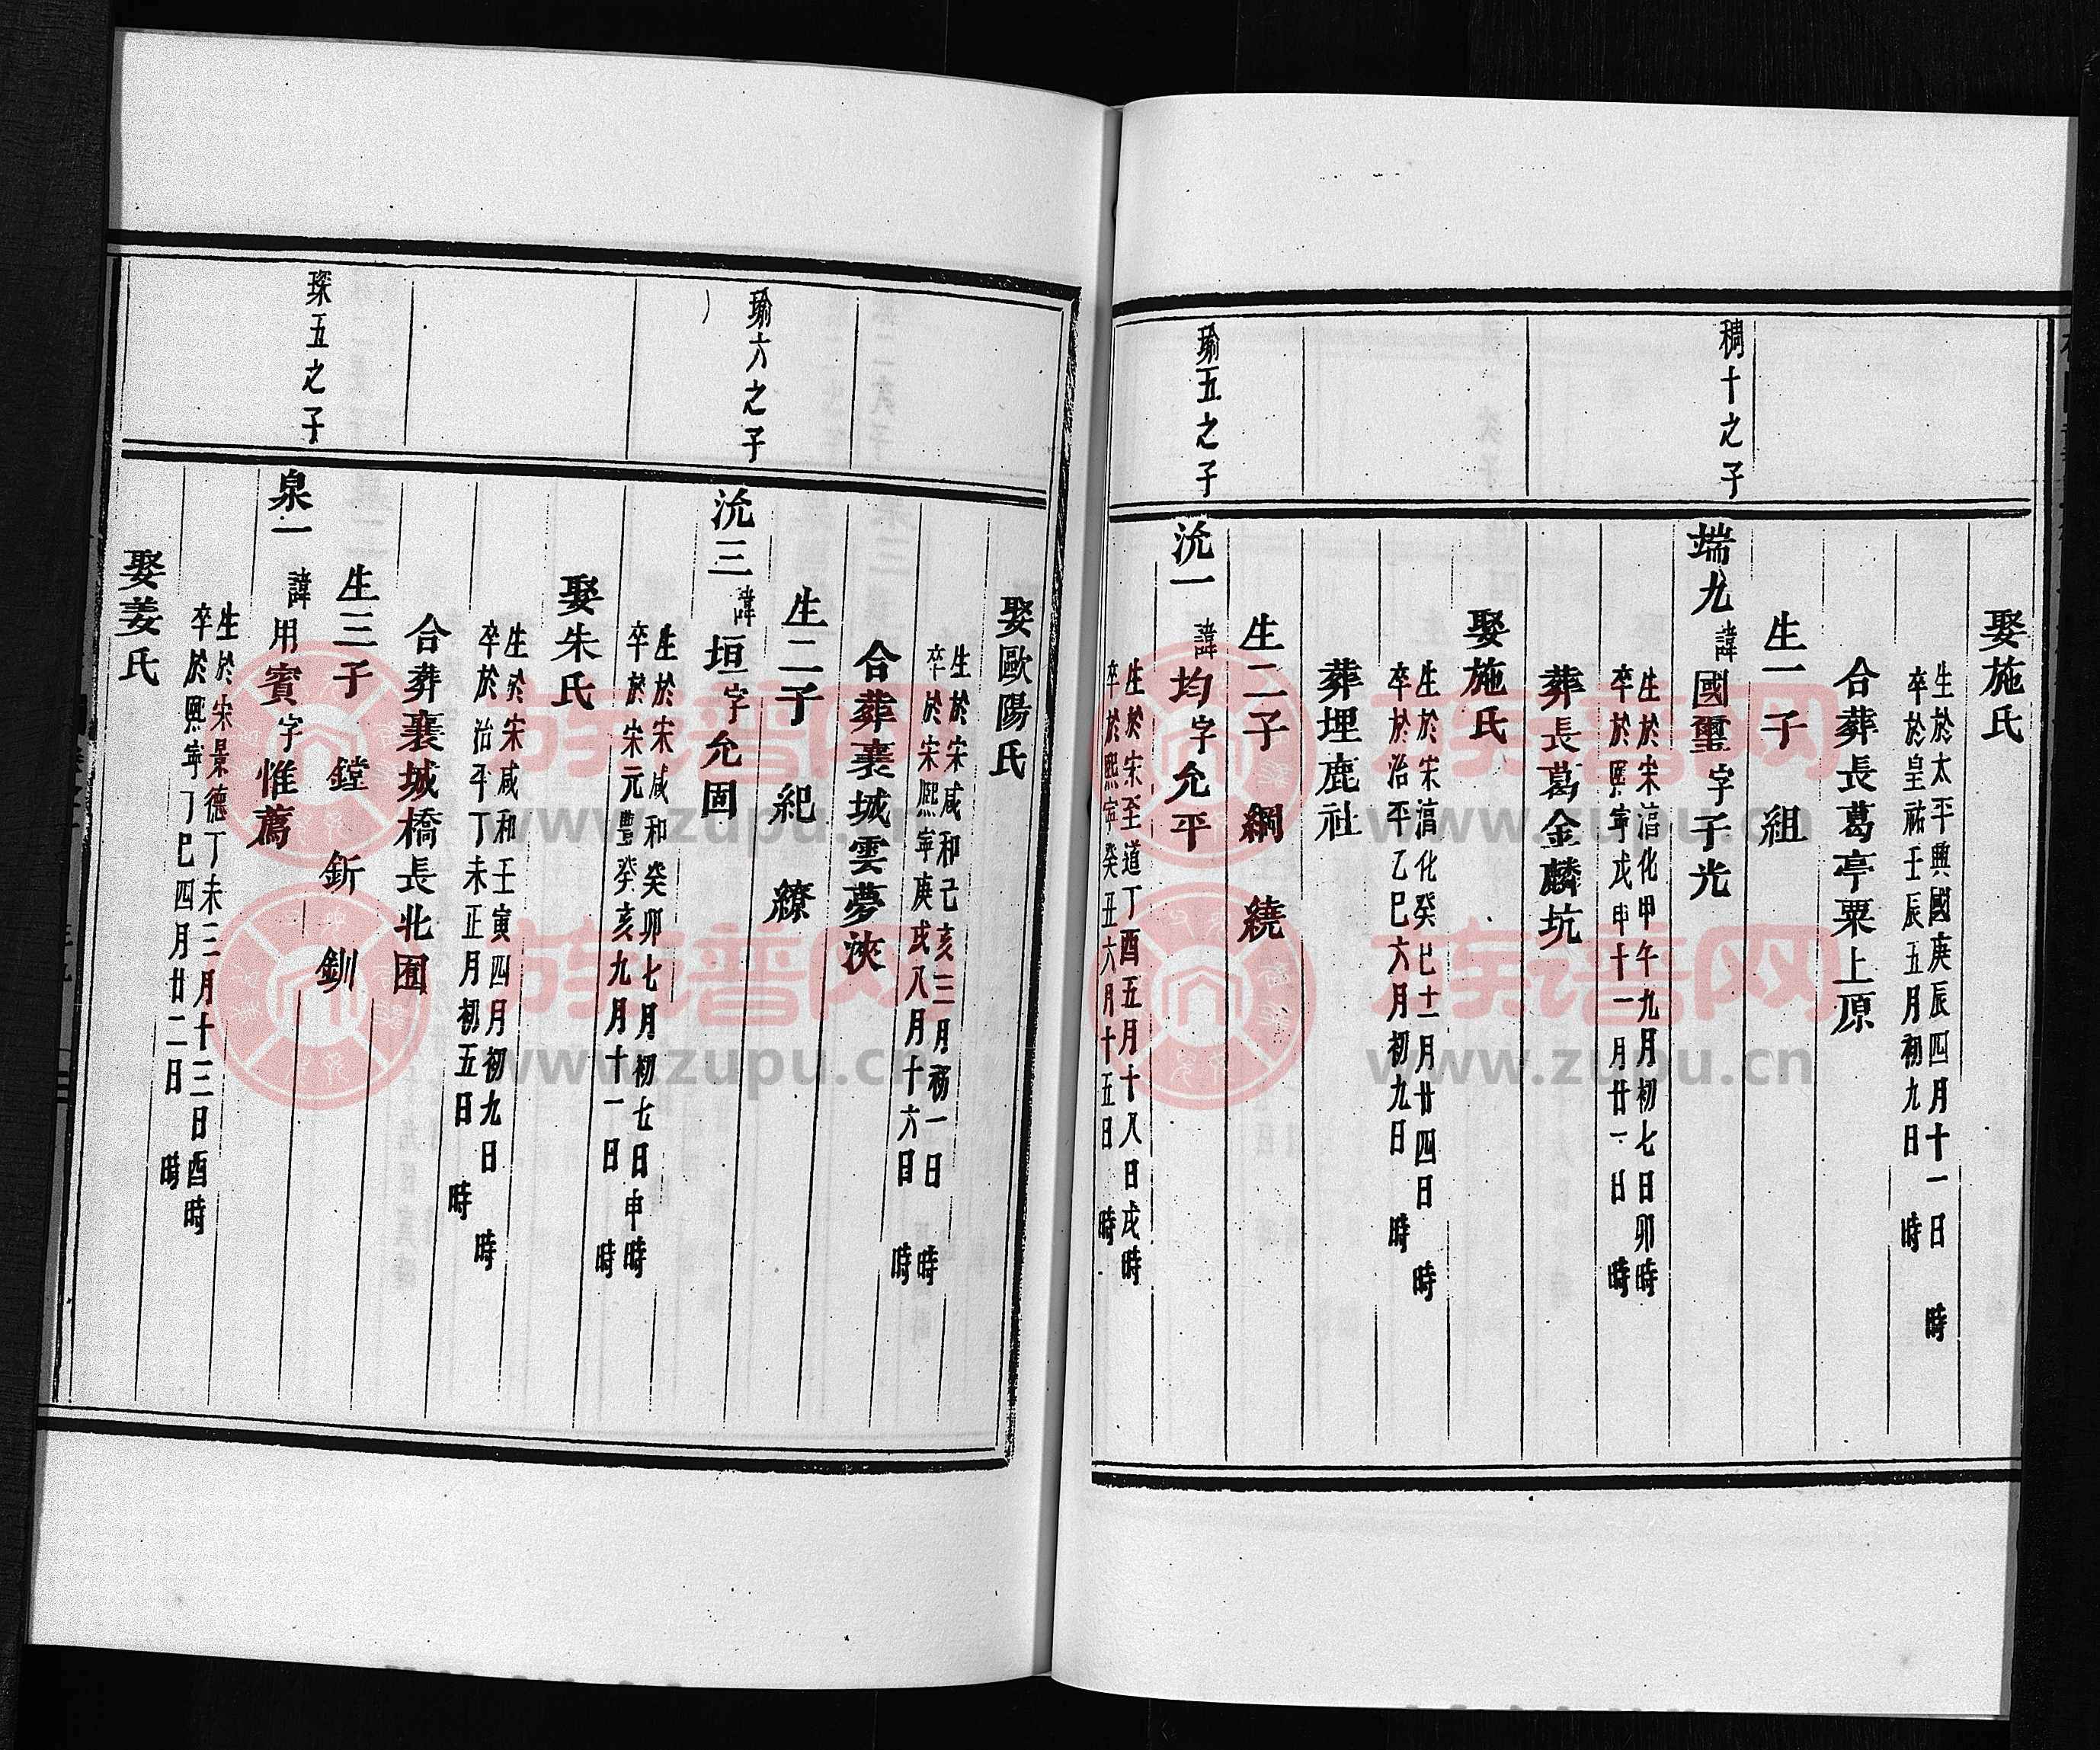 娶施氏
生於太平興國庚辰四月十一日 時
卒於皇祐壬辰五月初九日 時
合葬長葛亭粟上原
生一子 組
稠十之子
端九 諱國璽字子光
生於宋淳化甲午九月初七日卯時
卒於熙寧戊申十一月廿一日 時
葬長葛金麟坑
娶施氏
生於宋淳化癸巳十一月廿四日 時
卒於治平乙巳六月初九日 時
葬埋鹿社
生二子 綱 繞
瑜五之子
沇一 諱均字允平
生於宋至道丁酉五月十八日戌時
卒於熙寧癸丑六月十五日 時
娶歐陽氏
生於宋咸和己亥三月初一日 時
卒於宋熙寧庚戌八月十六日 時
合葬襄城雲夢浹
生二子 紀 繚
瑜六之子
沇三 諱垣字允固
生於宋咸和癸卯七月初七日申時
卒於宋元豐癸亥九月十一日 時
娶朱氏
生於宋咸和壬寅四月初九日 時
卒於治平丁未正月初五日 時
合葬襄城橋長北園
生三子 鏜 釿 釧
琛五之子
泉一 諱用賓字惟薦
生於宋景德丁未三月十三日酉時
卒於熙寧丁巳四月廿二日 時
娶姜氏
族譜网
www.zupu.cn
族譜网
www.zupu.cn
族譜网
www.zupu.cn
族譜网
www.zupu.cn